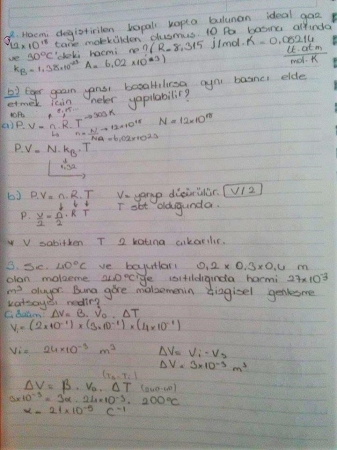 2. Hacmi değiştirilen kapalı kapta bulunan ideal gaz
12x10¹⁸ tane molekülden oluşmuş. 10 Pa basınç altında
ve 30°C'deki hacmi ne? (R = 8,315 J/mol.K = 0,08214 lt.atm/mol.K
k_B = 1,38x10⁻²³ A = 6,02x10²³)
b) Eğer gazın yarısı boşaltılırsa aynı basıncı elde
etmek için neler yapılabilir?
a) P.V = n.R.T → 303K N = 12x10¹⁸
n = N/NA → 12x10¹⁸ / 6,02x10²³
P.V = N.k_B.T
b) P.V = n.R.T V = yarıya düşürülür. V/2
T sbt olduğunda.
P. V/2 = n/2 . R T
* V sabitken T 2 katına çıkarılır.
3. 40°C ve boyutları 0,2 x 0,3 x 0,4 m
olan malzeme 240°C'ye ısıtıldığında hacmi 27x10⁻³
m³ oluyor. Buna göre malzemenin çizgisel genleşme
katsayısı nedir?
Çözüm: ΔV = β. V₀. ΔT
V₁ = (2x10⁻¹) x (3x10⁻¹) x (4x10⁻¹)
V₁ = 24x10⁻³ m³ ΔV = V₁ - V₀
ΔV = 3x10⁻³ m³
ΔV = β. V₀. ΔT
3x10⁻³ = 3α. 24x10⁻³. 200°C
α = 21x10⁻⁵ C⁻¹